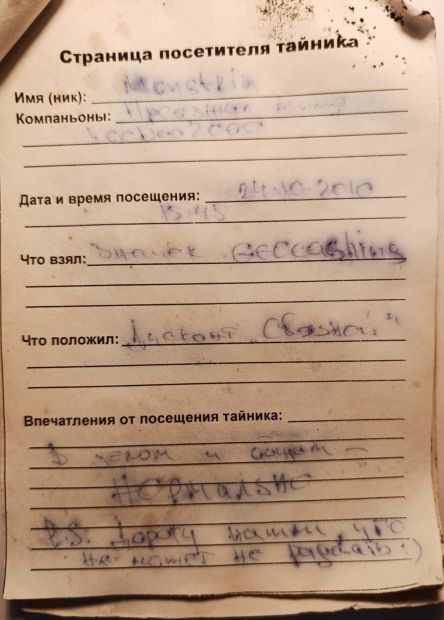 Страница посетителя тайника
Имя (ник): Monstrin
Компаньоны: Проезжал мимо
Дата и время посещения: 24.10.2010
15:45
Что взял: Значек GEOcashing
Что положил: Дисконт "Связной"
Впечатления от посещения тайника:
В целом и общем -
НОРМАЛЬНО
P.S. Дорогу нашли, что
не может не радовать :)